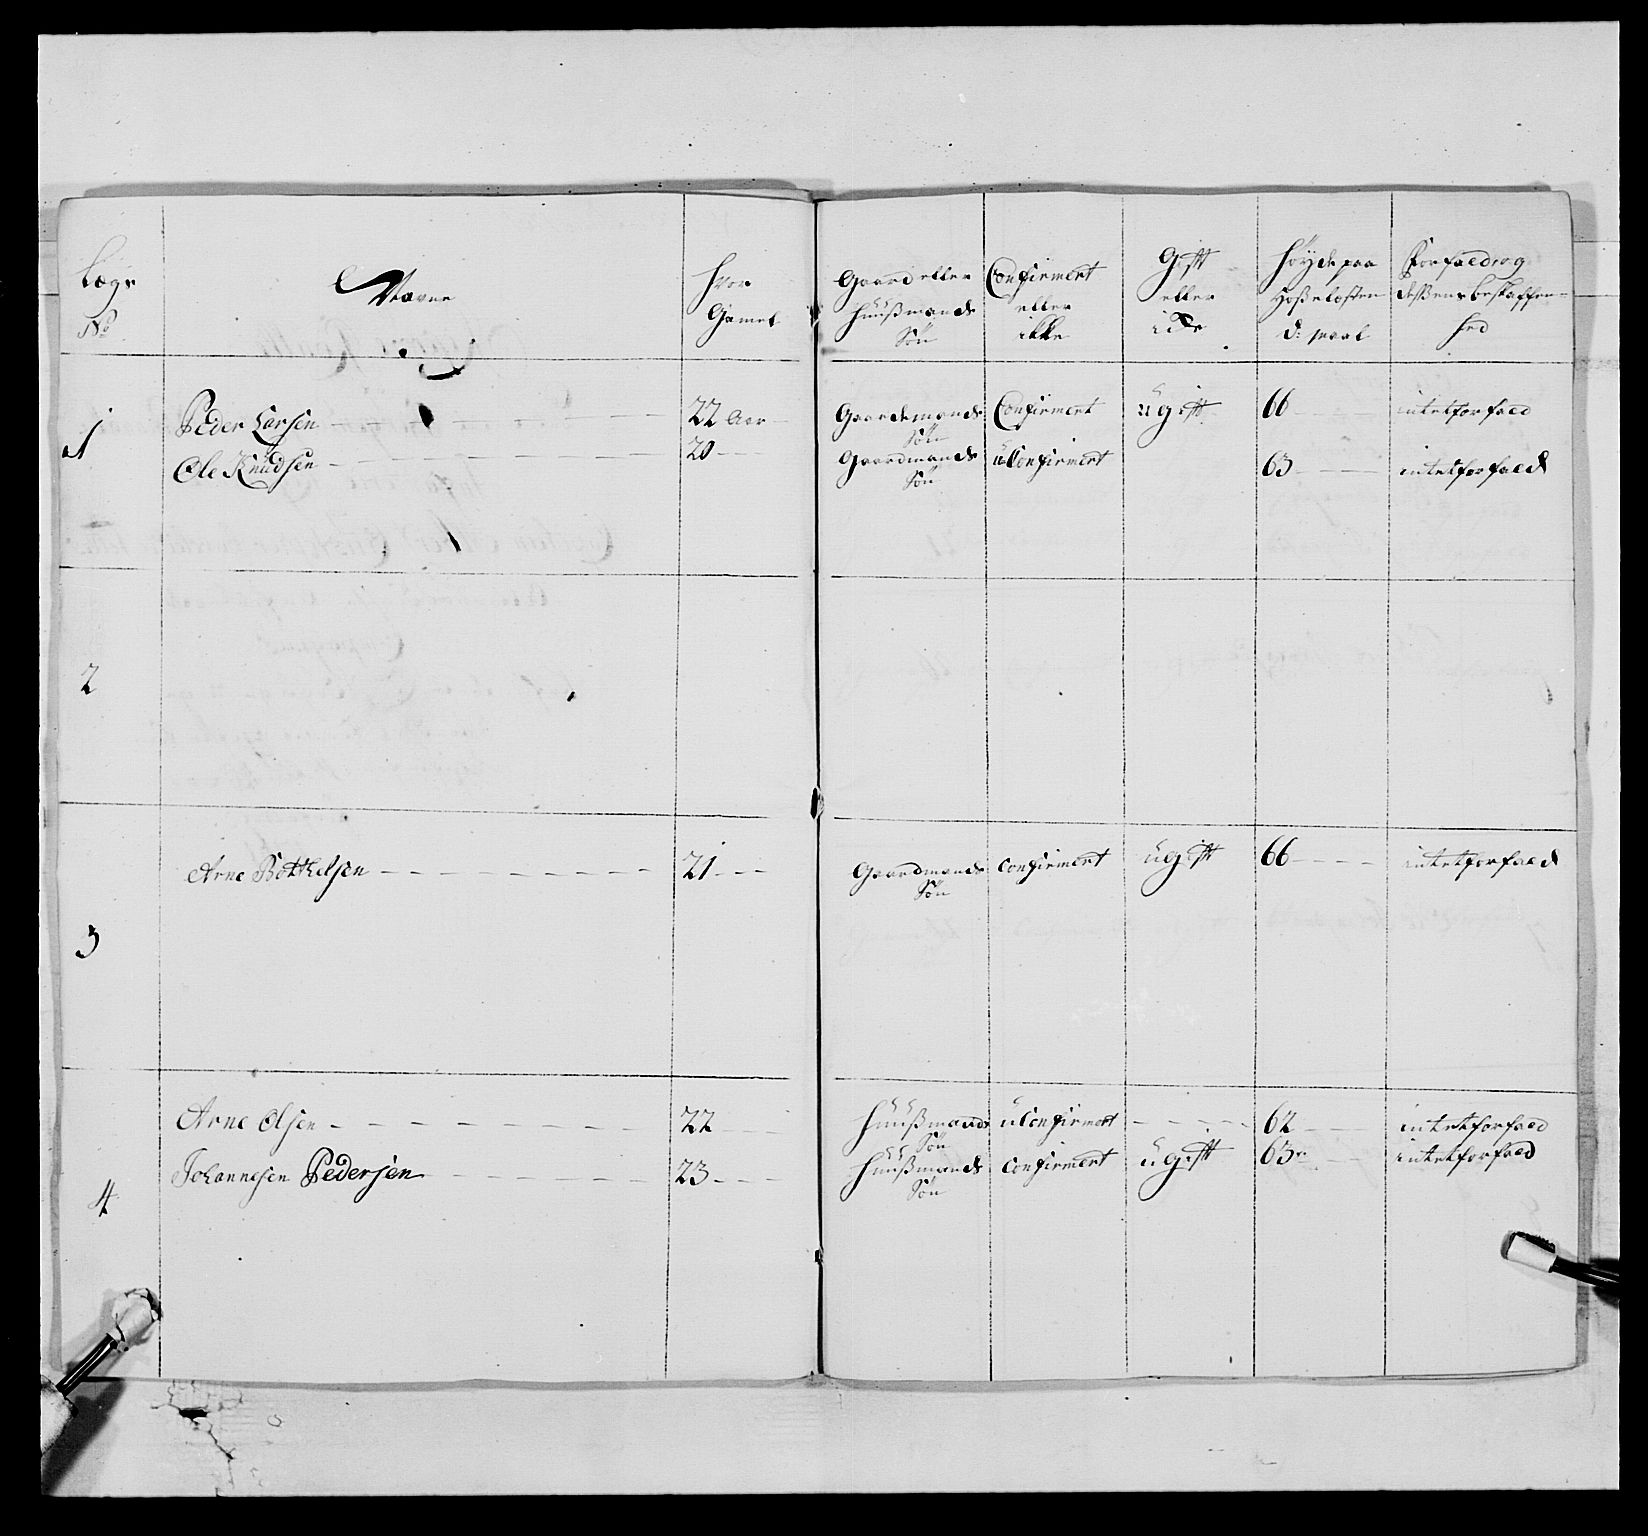 Lægs No
Navne
Hvor Gamel
Gaard eller Huusmands Søn
Confirmert eller ikke
Gift eller icke
Høyde paa Hoseløsten D: maal
For fald og deßens beskaffenhed
1
Peder Larsen 22 Aar Gaardemands Søn Confirmert ugift 66 intet forfald
Ole Knudsen 20 Gaardmands Søn uConfirmert 63 intet forfald
2
3
Arne Bottelsen 21 Gaardmands Søn confirmert ugift 66 intet forfald
4
Arne Olsen 22 Huußmands Søn uConfirmert 62 intet forfald
Johannesen Pedersen 23 Huußmands Søn confirmert ugift 63 intet forfald